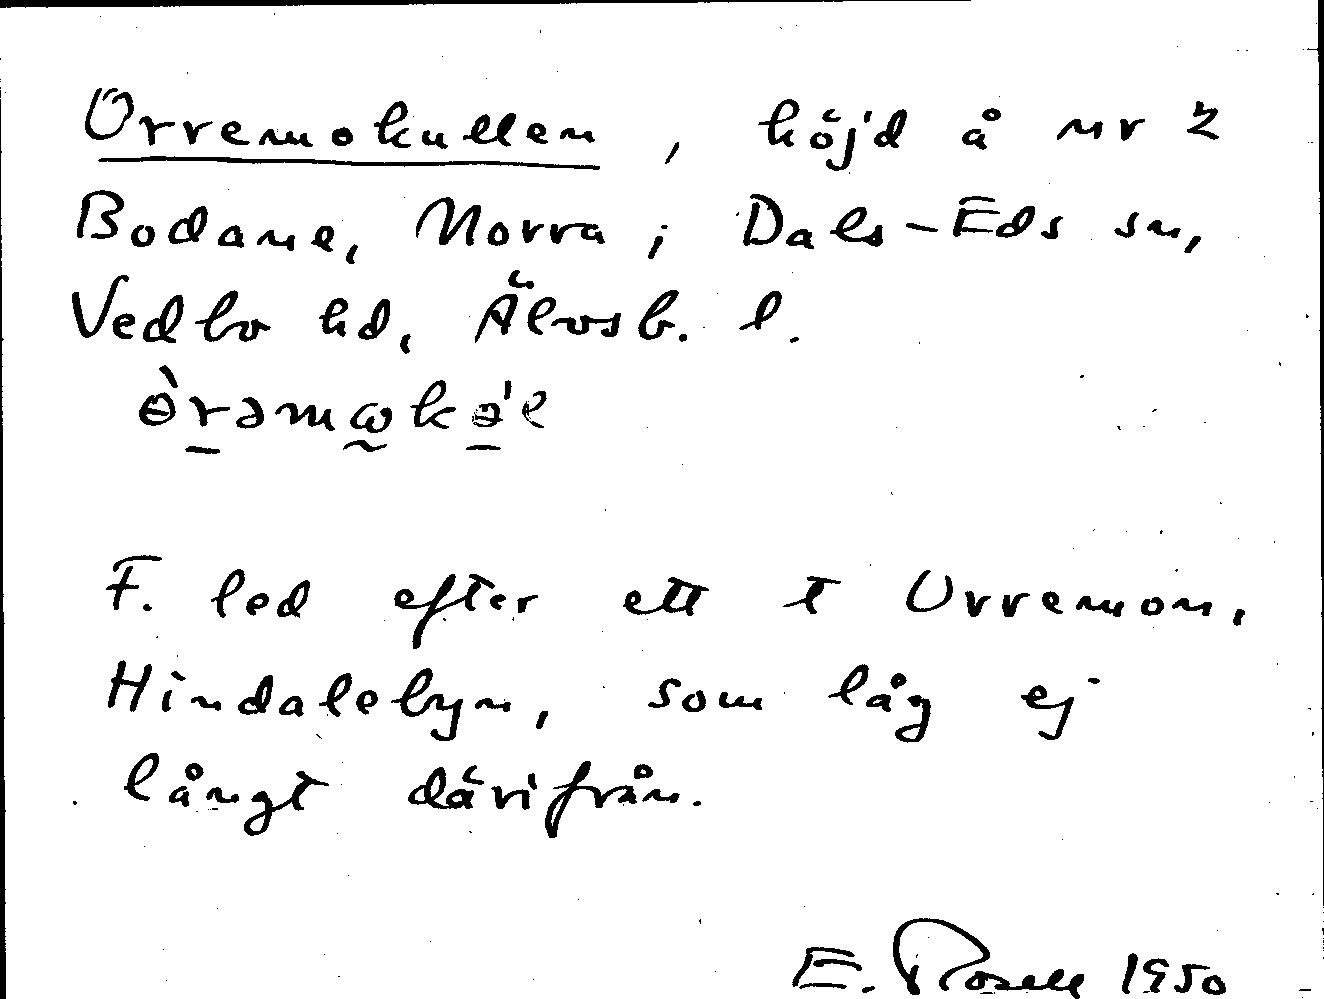 Orremokullen, höjd å nr 2
Bodane, Norra; Dals-Eds sn,
Vedbo hd, Älvsb. l.
F. led efter ett t Orremon,
Hindalebyn, som låg ej
långt därifrån.
E. Rosell 1950